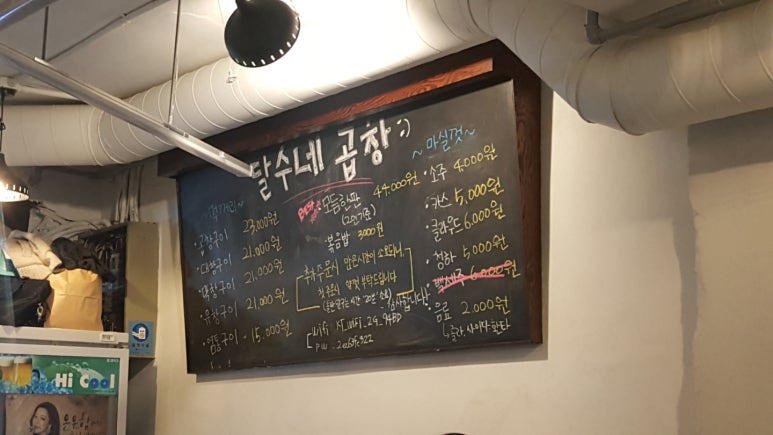 달수네 곱창 :)
~먹거리~
·곱창구이 23,000원
·대창구이 21,000원
·막창구이 21,000원
·유창구이 21,000원
·염통구이 15,000원
Best
·모듬한판 44,000원
(2인기준)
·볶음밥 3000원
추가주문시 많은시간이 소요되니,
첫주문시 양껏 부탁드립니다
감사합니다!
wifi
PW
~마실것~
·소주 4,000원
·카스 5,000원
·클라우드 6,000원
·청하 5,000원
·백세주 6,000원
·음료 2,000원
콜라, 사이다, 환타
Hi Cool